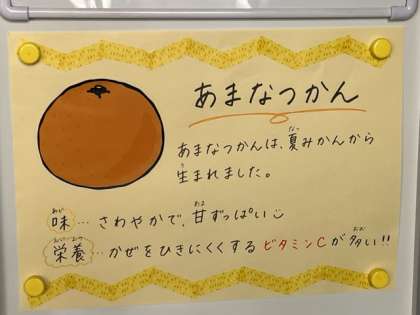 あまなつかん
あまなつかんは、夏みかんから
生まれました。
味…さわやかで、甘ずっぱい
栄養…かぜをひきにくくするビタミンCが多い!!